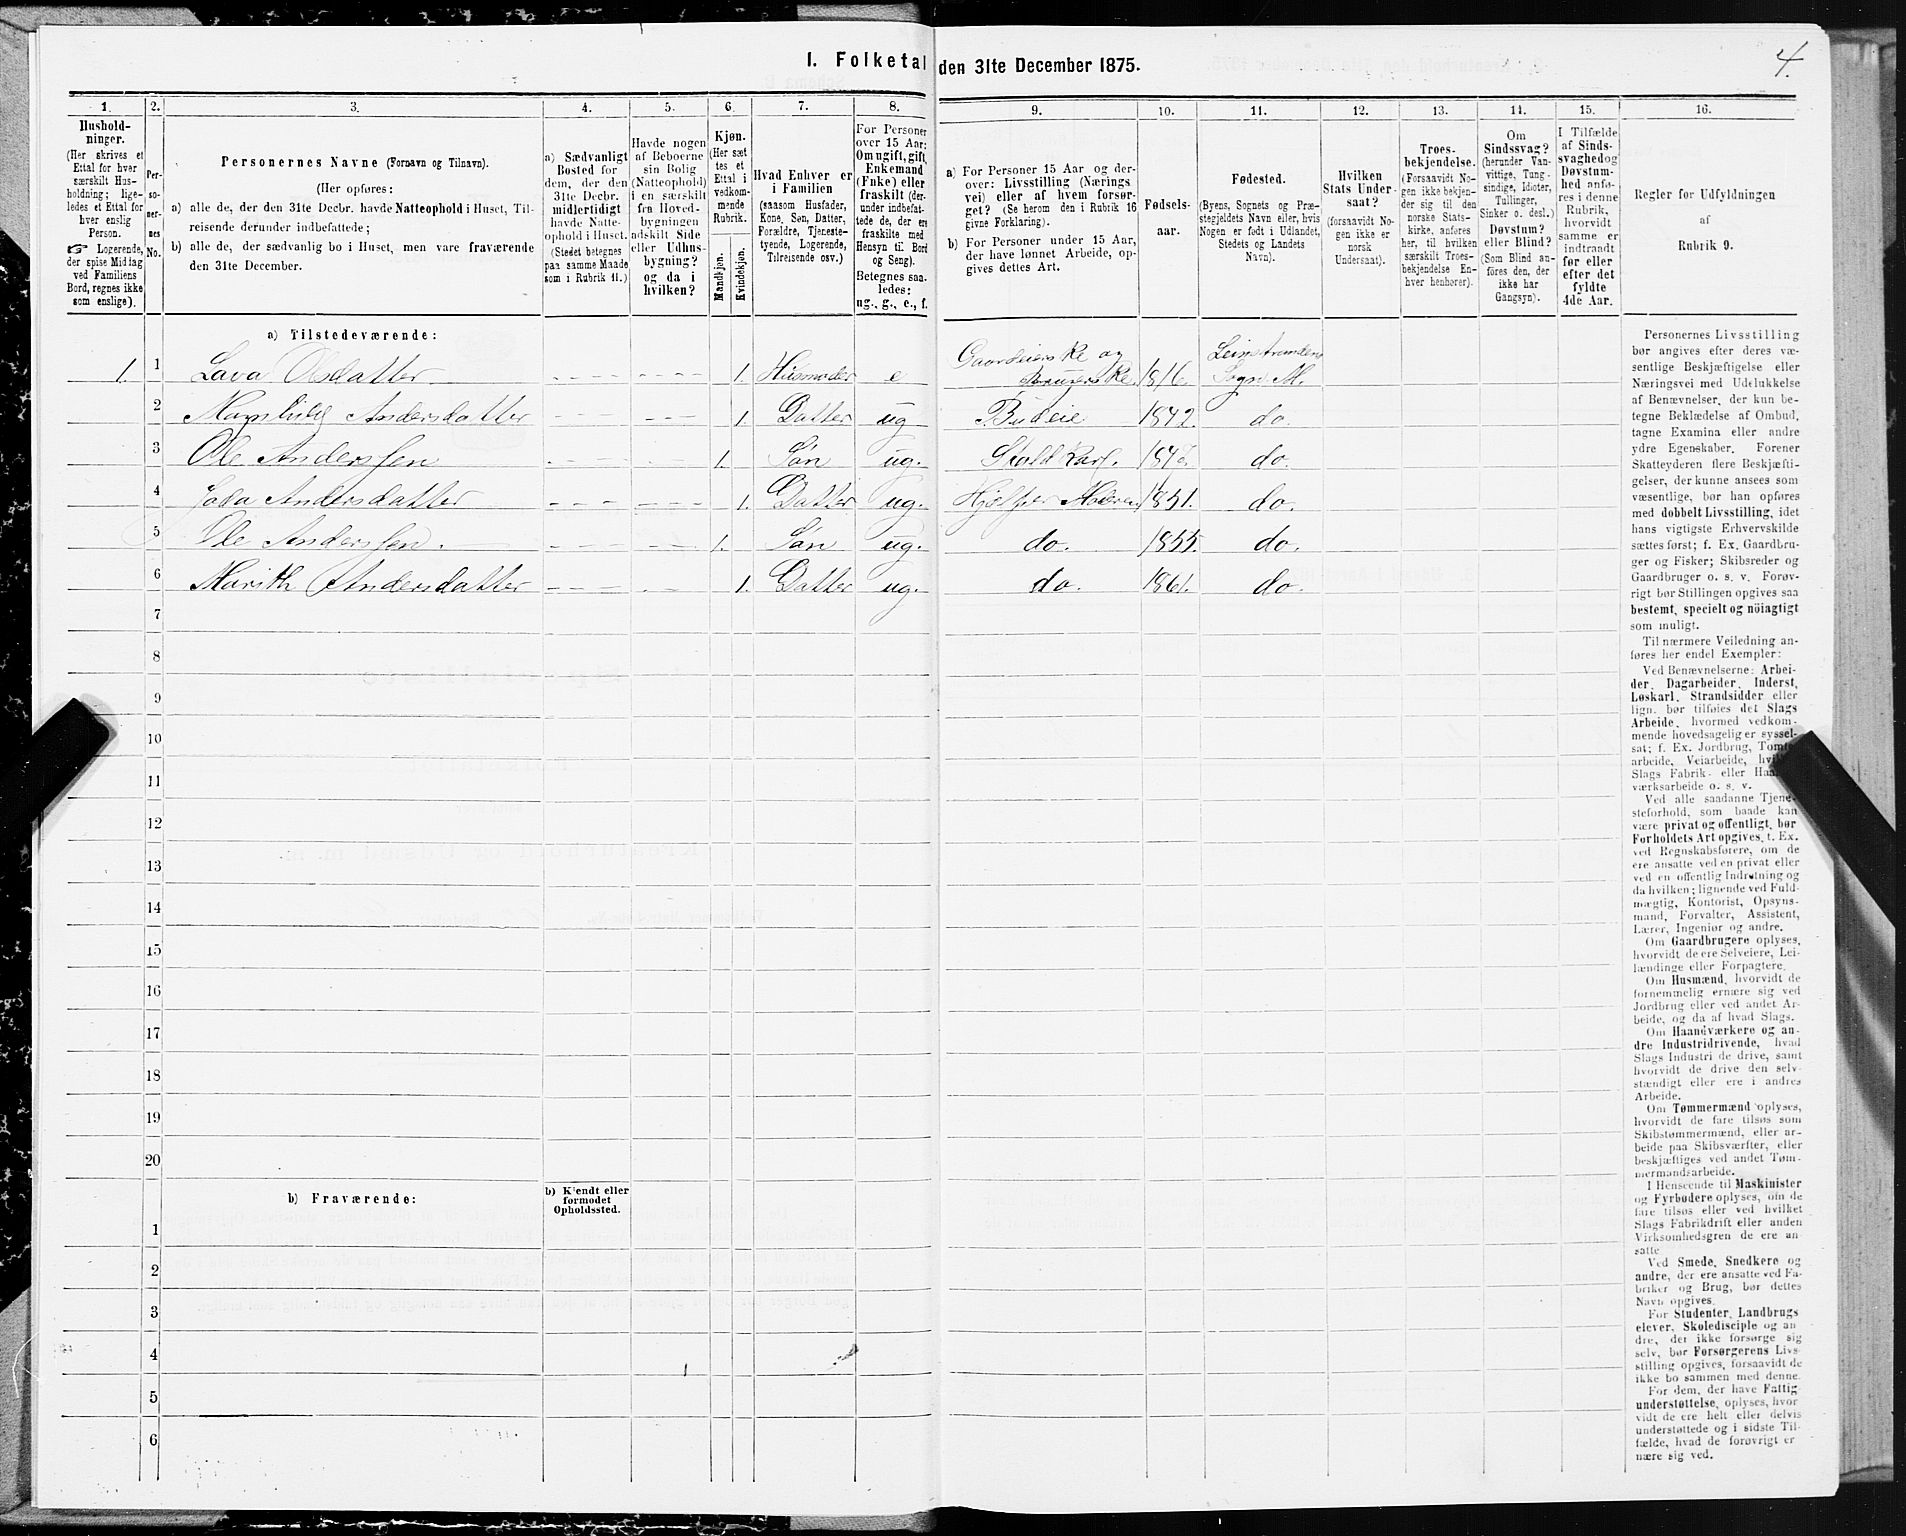 4.
I. Folketal den 31te December 1875.
1. 2. 3. 4. 5. 6. 7. 8. 9. 10. 11. 12. 13. 14. 15. 16.
Hushold-
ninger.
(Her skrives et
Ettal for hver
særskilt Hus-
holdning; lige-
ledes et Ettal for
hver enslig
Person.
☞ Logerende,
der spise Middag
ved Familiens
Bord, regnes ikke
som enslige).
Per-
so-
ner-
nes
No.
Personernes Navne (Fornavn og Tilnavn).
(Her opføres:
a) alle de, der den 31te Decbr. havde Natteophold i Huset, Til-
reisende derunder indbefattede;
b) alle de, der sædvanlig bo i Huset, men vare fraværende
den 31te December.
a) Sædvanligt
Bosted for
dem, der den
31te Decbr.
midlertidigt
havde Natte-
ophold i Huset.
(Stedet betegnes
paa samme Maade
som i Rubrik 11.)
Havde nogen
af Beboerne
sin Bolig
(Natteophold)
i en særskilt
fra Hoved-
bygningen
adskilt Side
eller Udhus-
bygning?
og da i
hvilken?
Kjøn.
(Her sæt
tes et
Ettal i
vedkom-
mende
Rubrik.
Mandkjøn.
Kvindekjøn.
Hvad Enhver er
i Familien
(saasom Husfader,
Kone, Søn, Datter,
Forældre, Tjeneste-
tyende, Logerende,
Tilreisende osv.)
For Personer
over 15 Aar:
Om ugift, gift,
Enkemand
(Enke) eller
fraskilt (der-
under indbefat-
tede de, der ere
fraskilte med
Hensyn til Bord
og Seng).
Betegnes saa-
ledes:
ug., g., e., f.
a) For Personer 15 Aar og der-
over: Livsstilling (Nærings
vei) eller af hvem forsør-
get? (Se herom den i Rubrik 16
givne Forklaring).
b) For Personer under 15 Aar,
der have lønnet Arbeide, op-
gives dettes Art.
Fødsels-
aar.
Fødested.
(Byens, Sognets og Præ-
stegjeldets Navn eller, hvis
Nogen er født i Udlandet,
Stedets og Landets
Navn).
Hvilken
Stats Under-
saat?
(forsaavidt No-
gen ikke er
norsk
Undersaat).
Troes-
bekjendelse.
(Forsaavidt No-
gen ikke bekjen-
der sig til den
norske Stats-
kirke, anføres
her, til hvilken
særskilt Troes-
bekjendelse En-
hver henhører).
Om
Sindssvag?
(herunder Van-
vittige, Tung-
sindige, Idioter,
Tullinger,
Sinker o. desl.)
Døvstum?
eller Blind?
(Som Blind an-
føres den, der
ikke har
Gangsyn).
I Tilfælde
af Sinds-
svaghed og
Døvstum-
hed anfø-
res i denne
Rubrik,
hvorvidt
samme er
indtraadt
før eller
efter det
fyldte
4de Aar.
Regler for Udfyldningen
af
Rubrik 9.
a) Tilstedeværende:
1. 1 Lava Olsdatter 1. Husmoder e Gaardeierske og Brugerske. 1816. Leinstrandens Sogn M.
2 Andersdatter 1. Datter ug Budeie 1842. do.
3 Ole Anderssen 1. Søn ug. Stald Karl. do.
4 Andersdatter 1. Datter ug. Hjælper Moderen 1851. do.
5 Ole Anderssen. 1. Søn ug. do. 1855. do.
6 Marith Andersdatter 1. Datter ug. do. 1861. do.
7
8
9
10
11
12
13
14
15
16
17
18
19
20
b) Fraværende:
b) Kjendt eller
formodet
Opholdssted.
1
2
3
4
5
6
Personernes Livsstilling
bør angives efter deres væ-
sentlige Beskjæftigelse eller
Næringsvei med Udelukkelse
af Benævnelser, der kun be-
tegne Beklædelse af Ombud,
tagne Examina eller andre
ydre Egenskaber. Forener
Skatteyderen flere Beskjæfti-
gelser, der kunne ansees som
væsentlige, bør han opføres
med dobbelt Livsstilling, idet
hans vigtigste Erhvervskilde
sættes først; f. Ex. Gaardbru-
ger og Fisker; Skibsreder og
Gaardbruger o. s. v. Forøv-
rigt bør Stillingen opgives saa
bestemt, specielt og nöiagtigt
som muligt.
Til nærmere Veiledning an-
føres her endel Exempler:
Ved Benævnelserne: Arbei-
der, Dagarbeider, Inderst,
Løskarl, Strandsidder eller
lign. bør tilføies det Slags
Arbeide, hvormed vedkom-
mende hovedsagelig er syssel-
sat; f. Ex. Jordbrug, Tomte-
arbeide, Veiarbeide,
Slags Fabrik- eller
værksarbeide o. s. v.
Ved alle saadanne Tjene-
steforhold, som baade kan
være privat og offentligt, bør
Forholdets Art opgives, t. Ex.
ved Regnskabsførere, om de
ere ansatte ved en privat eller
ved en offentlig Indretning og
da hvilken; lignende ved Fuld-
mægtig, Kontorist, Opsyns-
mand, Forvalter, Assistent,
Lærer, Ingeniør og andre.
Om Gaardbrugere oplyses,
hvorvidt de ere Selveiere, Lei-
lændinge eller Forpagtere.
Om Husmænd, hvorvidt de
fornemmelig ernære sig ved
Jordbrug eller ved andet Ar-
beide, og da af hvad Slags.
Om Haandværkere og an-
dre Industridrivende, hvad
Slags Industri de drive, samt
hvorvidt de drive den selv-
stændigt eller ere i andres
Arbeide.
Om Tømmermænd oplyses,
hvorvidt de fare tilsøs som
Skibstømmermænd, eller ar-
beide paa Skibsværfter, eller
beskjæftiges ved andet Tøm-
mermandsarbeide.
I Henseende til Maskinister
og Fyrbødere oplyses, om de
fare tilsøs eller ved hvilket
Slags Fabrikdrift eller anden
Virksomhedsgren de ere an-
satte
Ved Smede, Snedkere og
andre, der ere ansatte ved Fa-
briker og Brug, bør dettes
Navn opgives.
For Studenter, Landbrugs
elever, Skoledisciple og an
dre, der ikke forsørge sig
selv, bør Forsørgerens Livs-
stilling opgives, forsaavidt de
ikke bo sammen med denne.
For dem, der have Fattig-
understøttelse, oplyses, hvor
vidt de ere helt eller delvis
understøttede og i sidste Til-
fælde, hvad de forøvrigt er
nære sig ved.